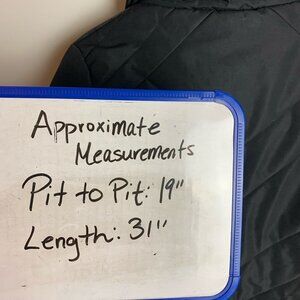 Approximate
Measurements
Pit to Pit: 19"
Length: 31"